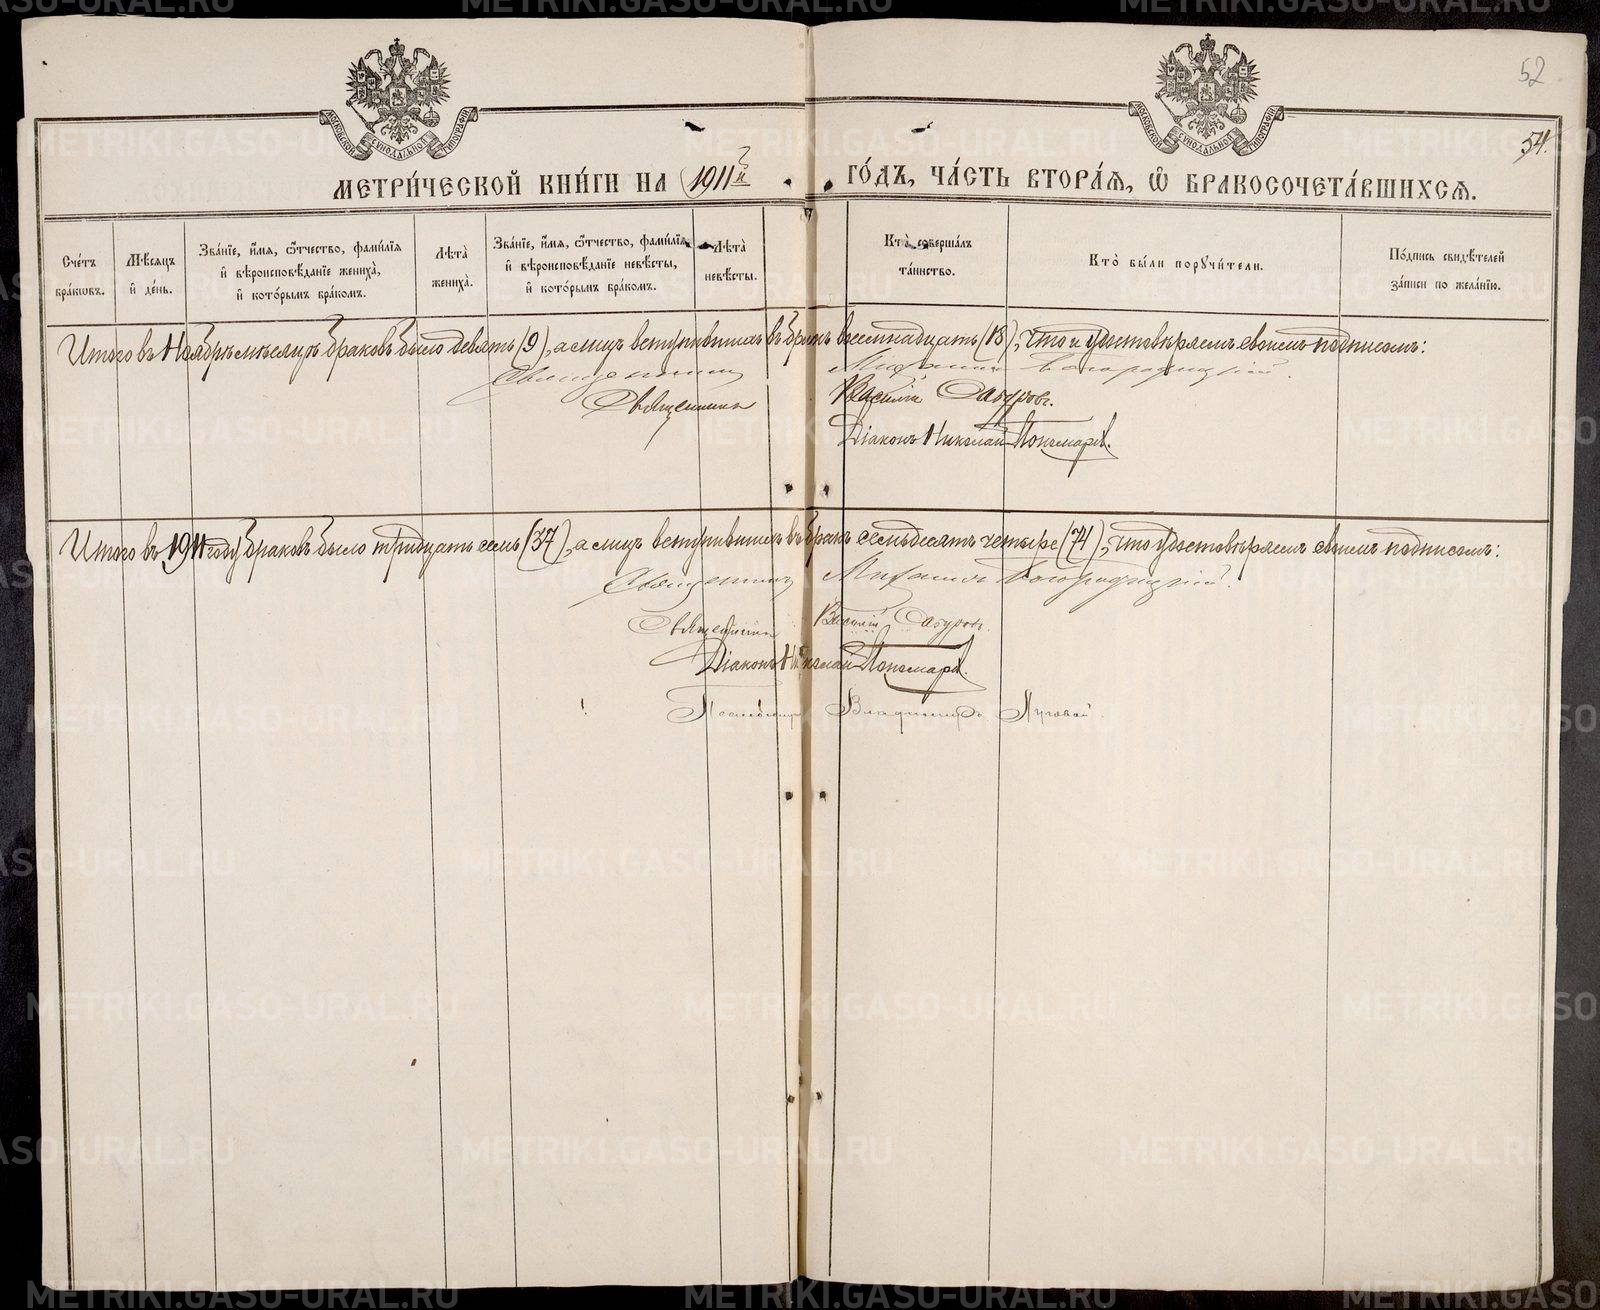 52
54.
МЕТРИ́ЧЕСКОЙ КНИ́ГИ НА 1911й ГО́ДЪ, ЧА́СТЬ ВТОРА́Я, Ѡ БРАКОСОЧЕТА́ВШИХСЯ.
Сче́тъ бра́кѡвъ.
Мѣ́сяцъ и҆ де́нь.
Зва́нїе, и҆́мя, ѻ҆́тчество, фами́лїя и҆ вѣроисповѣ́данїе жениха̀, и҆ кото́рымъ бра́комъ.
Лѣ́та жениха̀.
Зва́нїе, и҆́мя, ѻ҆́тчество, фами́лїя и҆ вѣроисповѣ́данїе невѣ́сты, и҆ кото́рымъ бра́комъ.
Лѣ́та невѣ́сты.
Кто̀ соверша́лъ та́инство.
Кто̀ бы́ли поручи́тели.
По́дпись свидѣ́телей за́писи по жела́нїю.
Итого въ Ноябрѣ мѣсяцѣ браковъ было девять (9), а лицъ вступившихъ въ бракъ восемнадцать (18), что и удостовѣряемъ своимъ подписомъ:
Священникъ Михаилъ Богородицкій.
Священникъ Василій Сабуровъ.
Діаконъ Николай Пономаревъ.
Итого въ 1911 году браковъ было тридцать семь (37), а лицъ вступившихъ въ бракъ семьдесятъ четыре (74), что удостовѣряемъ своимъ подписомъ:
Священникъ Михаилъ Богородицкій.
Священникъ Василій Сабуровъ.
Діаконъ Николай Пономаревъ.
Псаломщикъ Владимиръ Луговой
METRIKI.GASO-URAL.RU